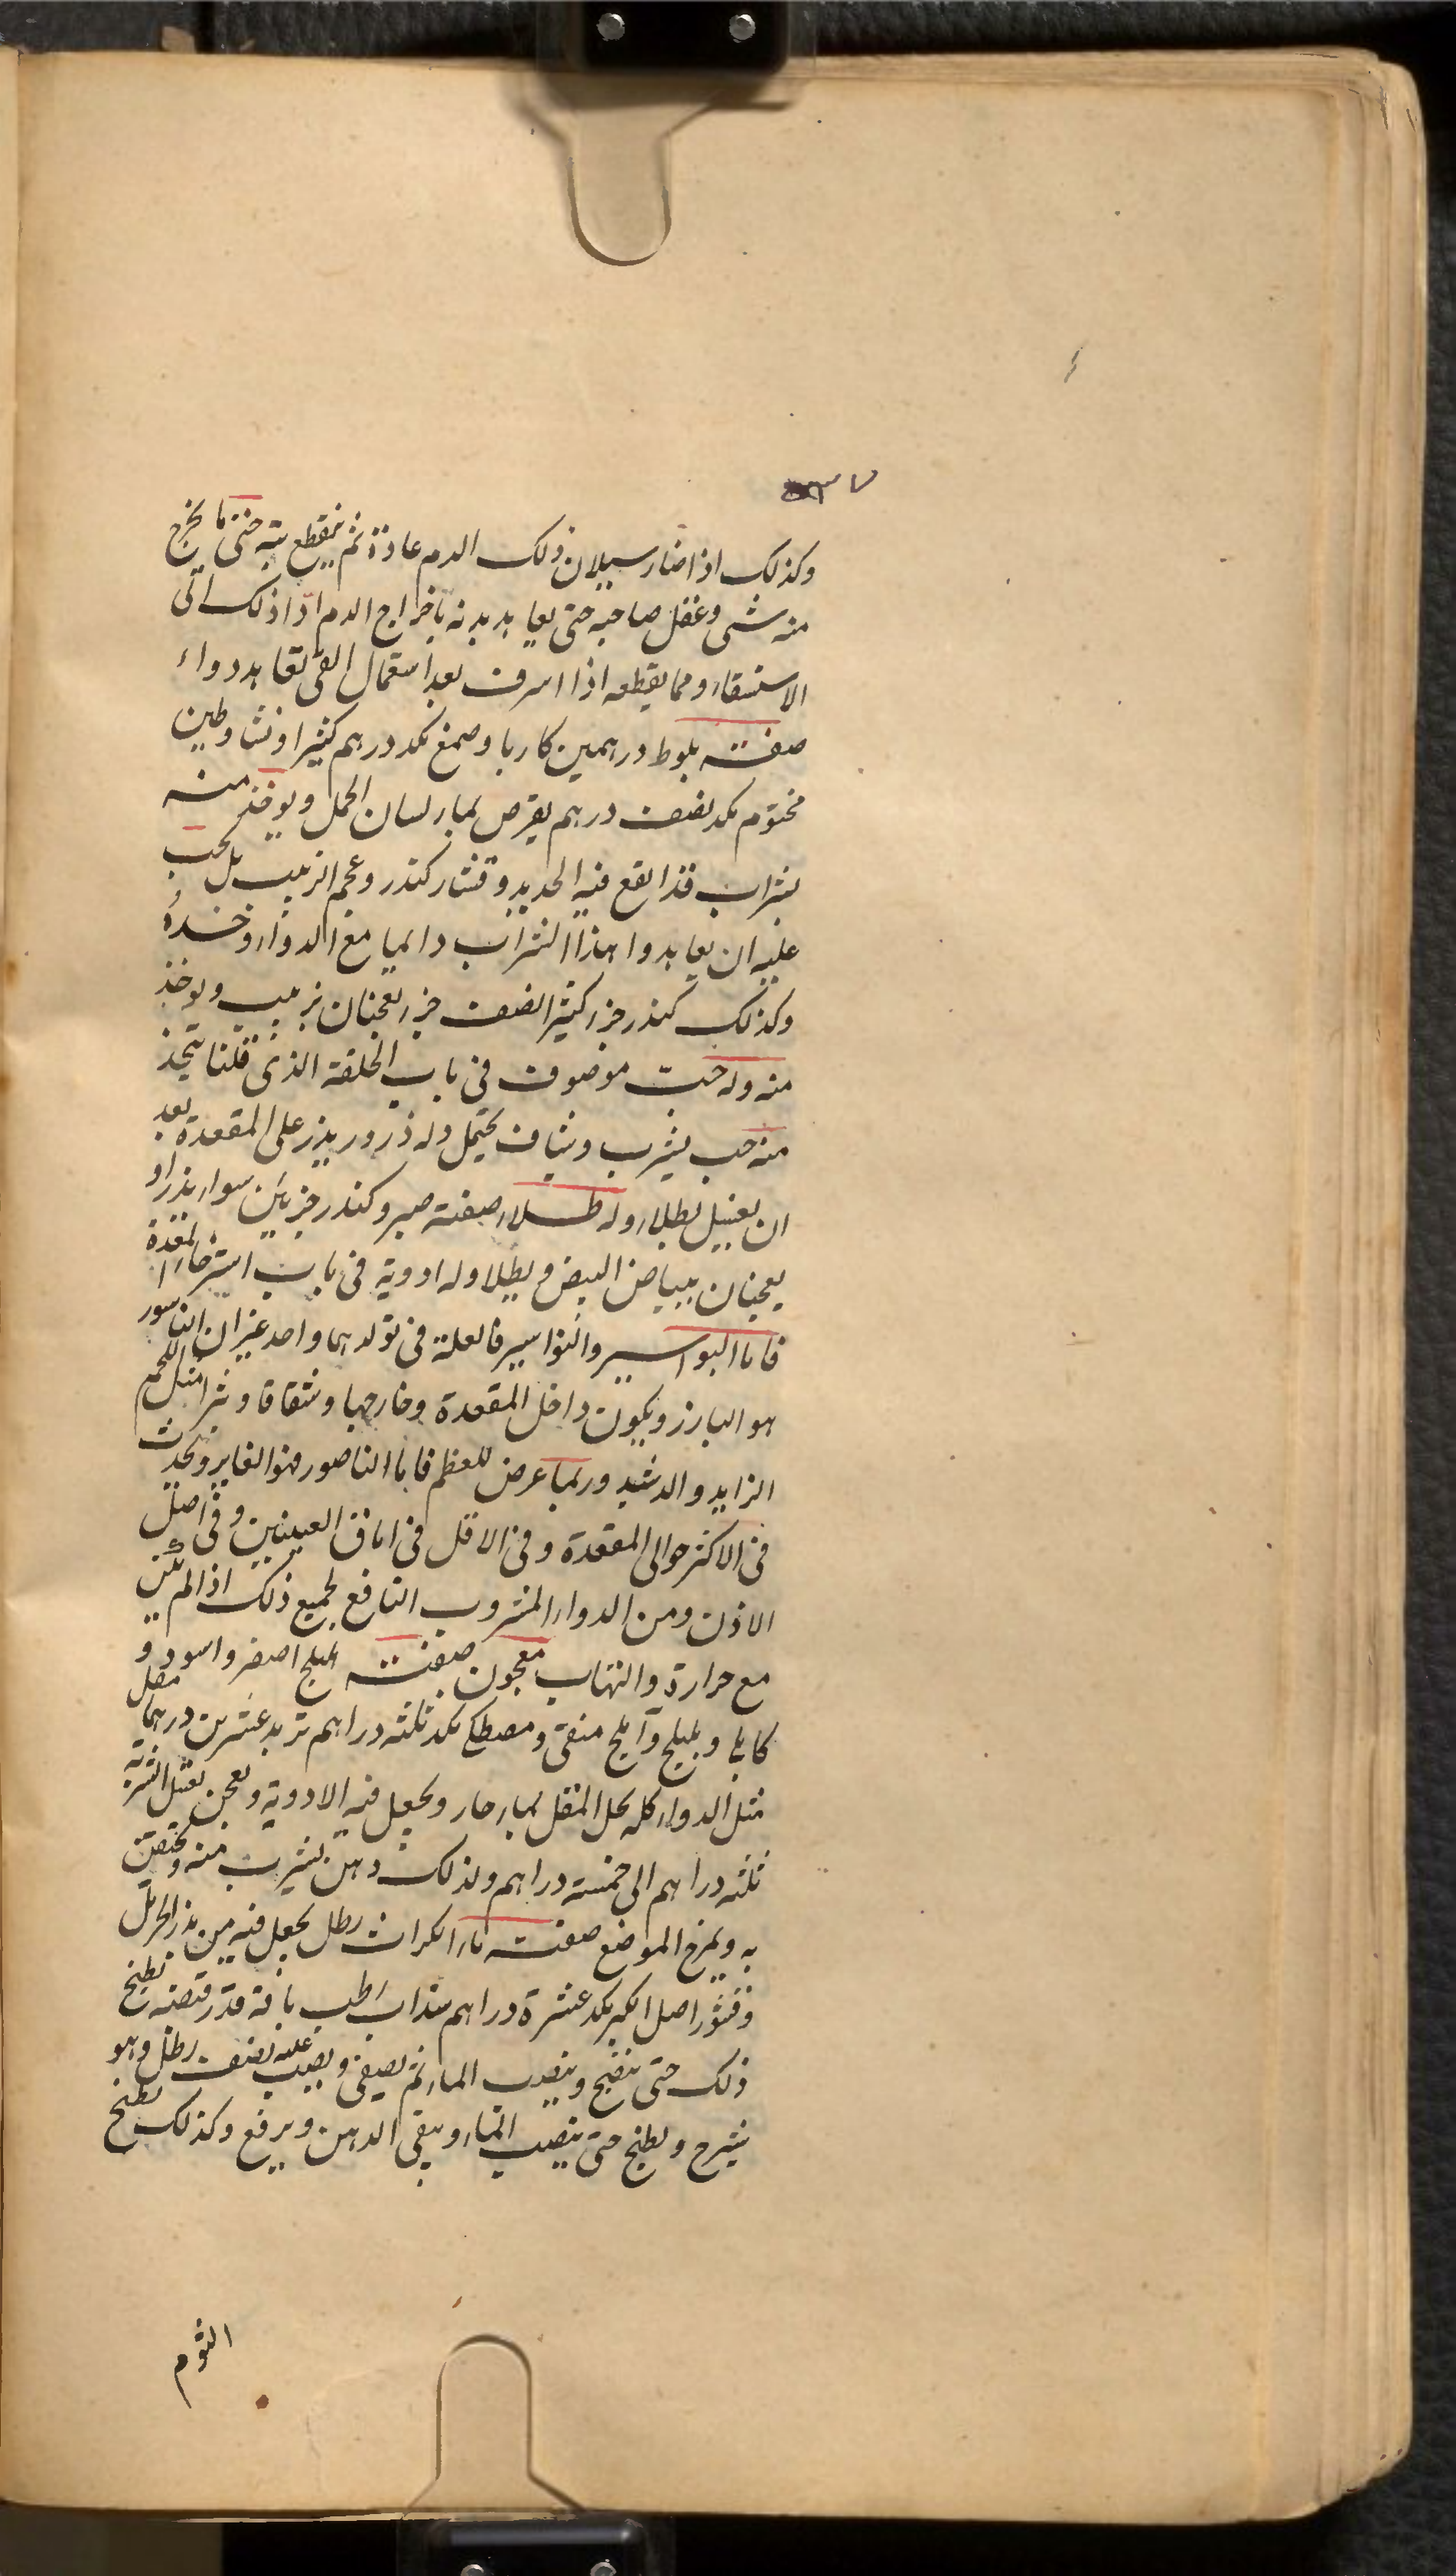 ٣٧
وكذلك اذا صار سيلان ذلك الدم عادة ثم ينقطع بتة حتى ما يخرج
منه شى وغفل صاحبه حتى يعاهد بدنه باخراج الدم ادا ذلك الى
الاستسقاء ومما يقطعه اذا اسرف بعد استعمال القى تعاهد دواء
صفته بلوط درهمين كاربا وصمغ بكد درهم كثيرا ونشا وطين
مختوم بكد نصف درهم يقرص بماء لسان الحمل ويوخذ منه
بشراب قد انقع فيه الحديد وقشار كندر وعجم الزبيب بل يجب
عليه ان يعاهدوا هذا الشراب دايما مع الدواء وخده
وكذلك كندر جزء كثيرا نصف جزء يعجنان بزبيب ويوخذ
منه وله حب موصوف فى باب الخلفة الذى قلنا يتخذ
منه حب يشرب وشياف يحتمل وله ذرور يذر على المقعدة بعد
ان يغسل بطلاء وله طلاء صفته صبر وكندر جزءين سواء يذر او
يعجنان ببياض البيض ويطلا وله ادوية فى باب استرخاء المقعدة
فاما البواسير والنواسير فالعلة فى تولدهما واحد غير ان الناسور
هو البارز ويكون داخل المقعدة وخارجها وشقاقا ونثرا مثل اللحم
الزايد والدشيد وربما عرض للعظم فاما الناصور فهو الغاير ويحدث
فى الاكثر حوالى المقعدة وفى الاقل فى اماق العينين وفى اصل
الاذن ومن الدواء المشروب النافع لجميع ذلك اذا لم يكن
مع حرارة والتهاب معجون صفته اهليلج اصفر واسود و
كابلى وبليلج وآملج منقى ومصطكى بكد ثلثه دراهم تربد عشرين درهما مقل
مثل الدواء كله يحل المقل بماء حار ويجعل فيه الادوية ويعجن بعسل الشربة
ثلثه دراهم الى خمسة دراهم ولذلك دهن يشرب منه ويحتقن
به ويمرخ الموضع صفته ماء الكراث رطل يجعل فيه من بذر الحرمل
وقشور اصل الكبر بكد عشرة دراهم سذاب رطب باقة قدر قبضه يطبخ
ذلك حتى ينضج وينصب الماء ثم يصفى ويصب عليه نصف رطل وهو
شيرج ويطبخ حتى ينضب الماء ويبقى الدهن ويرفع وكذلك يطبخ
الثوم